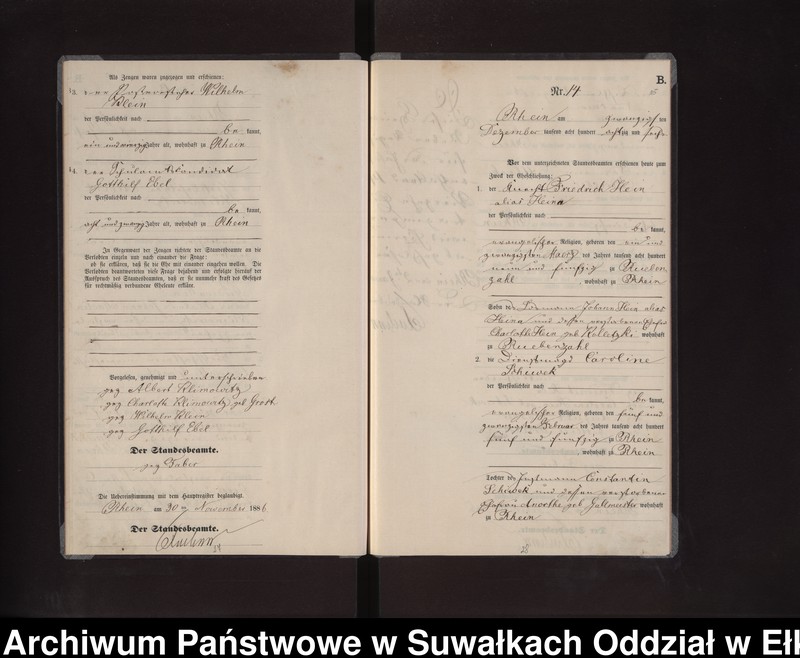 Als Zeugen waren zugezogen und erschienen:
13. der Wilhelm
Klein
der Persönlichkeit nach
be kannt,
ein und vierzig Jahre alt, wohnhaft zu Rhein
14. der Schulamtskandidat
Gotthilf Ebel
der Persönlichkeit nach
be kannt,
acht und zwanzig Jahre alt, wohnhaft zu Rhein
In Gegenwart der Zeugen richtete der Standesbeamte an die
Verlobten einzeln und nach einander die Frage:
ob sie erklären, daß sie die Ehe mit einander eingehen wollen. Die
Verlobten beantworteten diese Frage bejahend und erfolgte hierauf der
Ausspruch des Standesbeamten, daß er sie nunmehr kraft des Gesetzes
für rechtmäßig verbundene Eheleute erkläre.
Vorgelesen, genehmigt und unterschrieben
gez Albert Klimowitz
gez Charlotte Klimowitz geb Grost
gez Wilhelm Klein
gez Gotthilf Ebel
Der Standesbeamte.
gez Faber
Die Uebereinstimmung mit dem Hauptregister beglaubigt.
Rhein am 30 November 1886
Der Standesbeamte.
B.
Nr. 14
Rhein am zwanzigsten
Dezember tausend acht hundert achtzig und sechs
Vor dem unterzeichneten Standesbeamten erschienen heute zum
Zweck der Eheschließung:
1. der Knecht Friedrich Hein
alias Heina
der Persönlichkeit nach
be kannt,
evangelischer Religion, geboren den ein und
zwanzigsten Maerz des Jahres tausend acht hundert
neun und fünfzig zu Rueben
zahl, wohnhaft zu Rhein
Sohn des Losmann Johann Hein alias
Heina und dessen verstorbenen Ehefrau
Charlotte Hein geb Kolletzki wohnhaft
zu Ruebenzahl
2. die Dienstmagd Caroline
Schiwek
der Persönlichkeit nach
be kannt,
evangelischer Religion, geboren den fünf und
zwanzigsten Februar des Jahres tausend acht hundert
fünf und fünfzig zu Rhein
, wohnhaft zu Rhein
Tochter des Instmann Constantin
Schiwek und dessen verstorbenen
Ehefrau geb wohnhaft
zu Rhein
Archiwum Państwowe w Suwałkach Oddział w Ełk